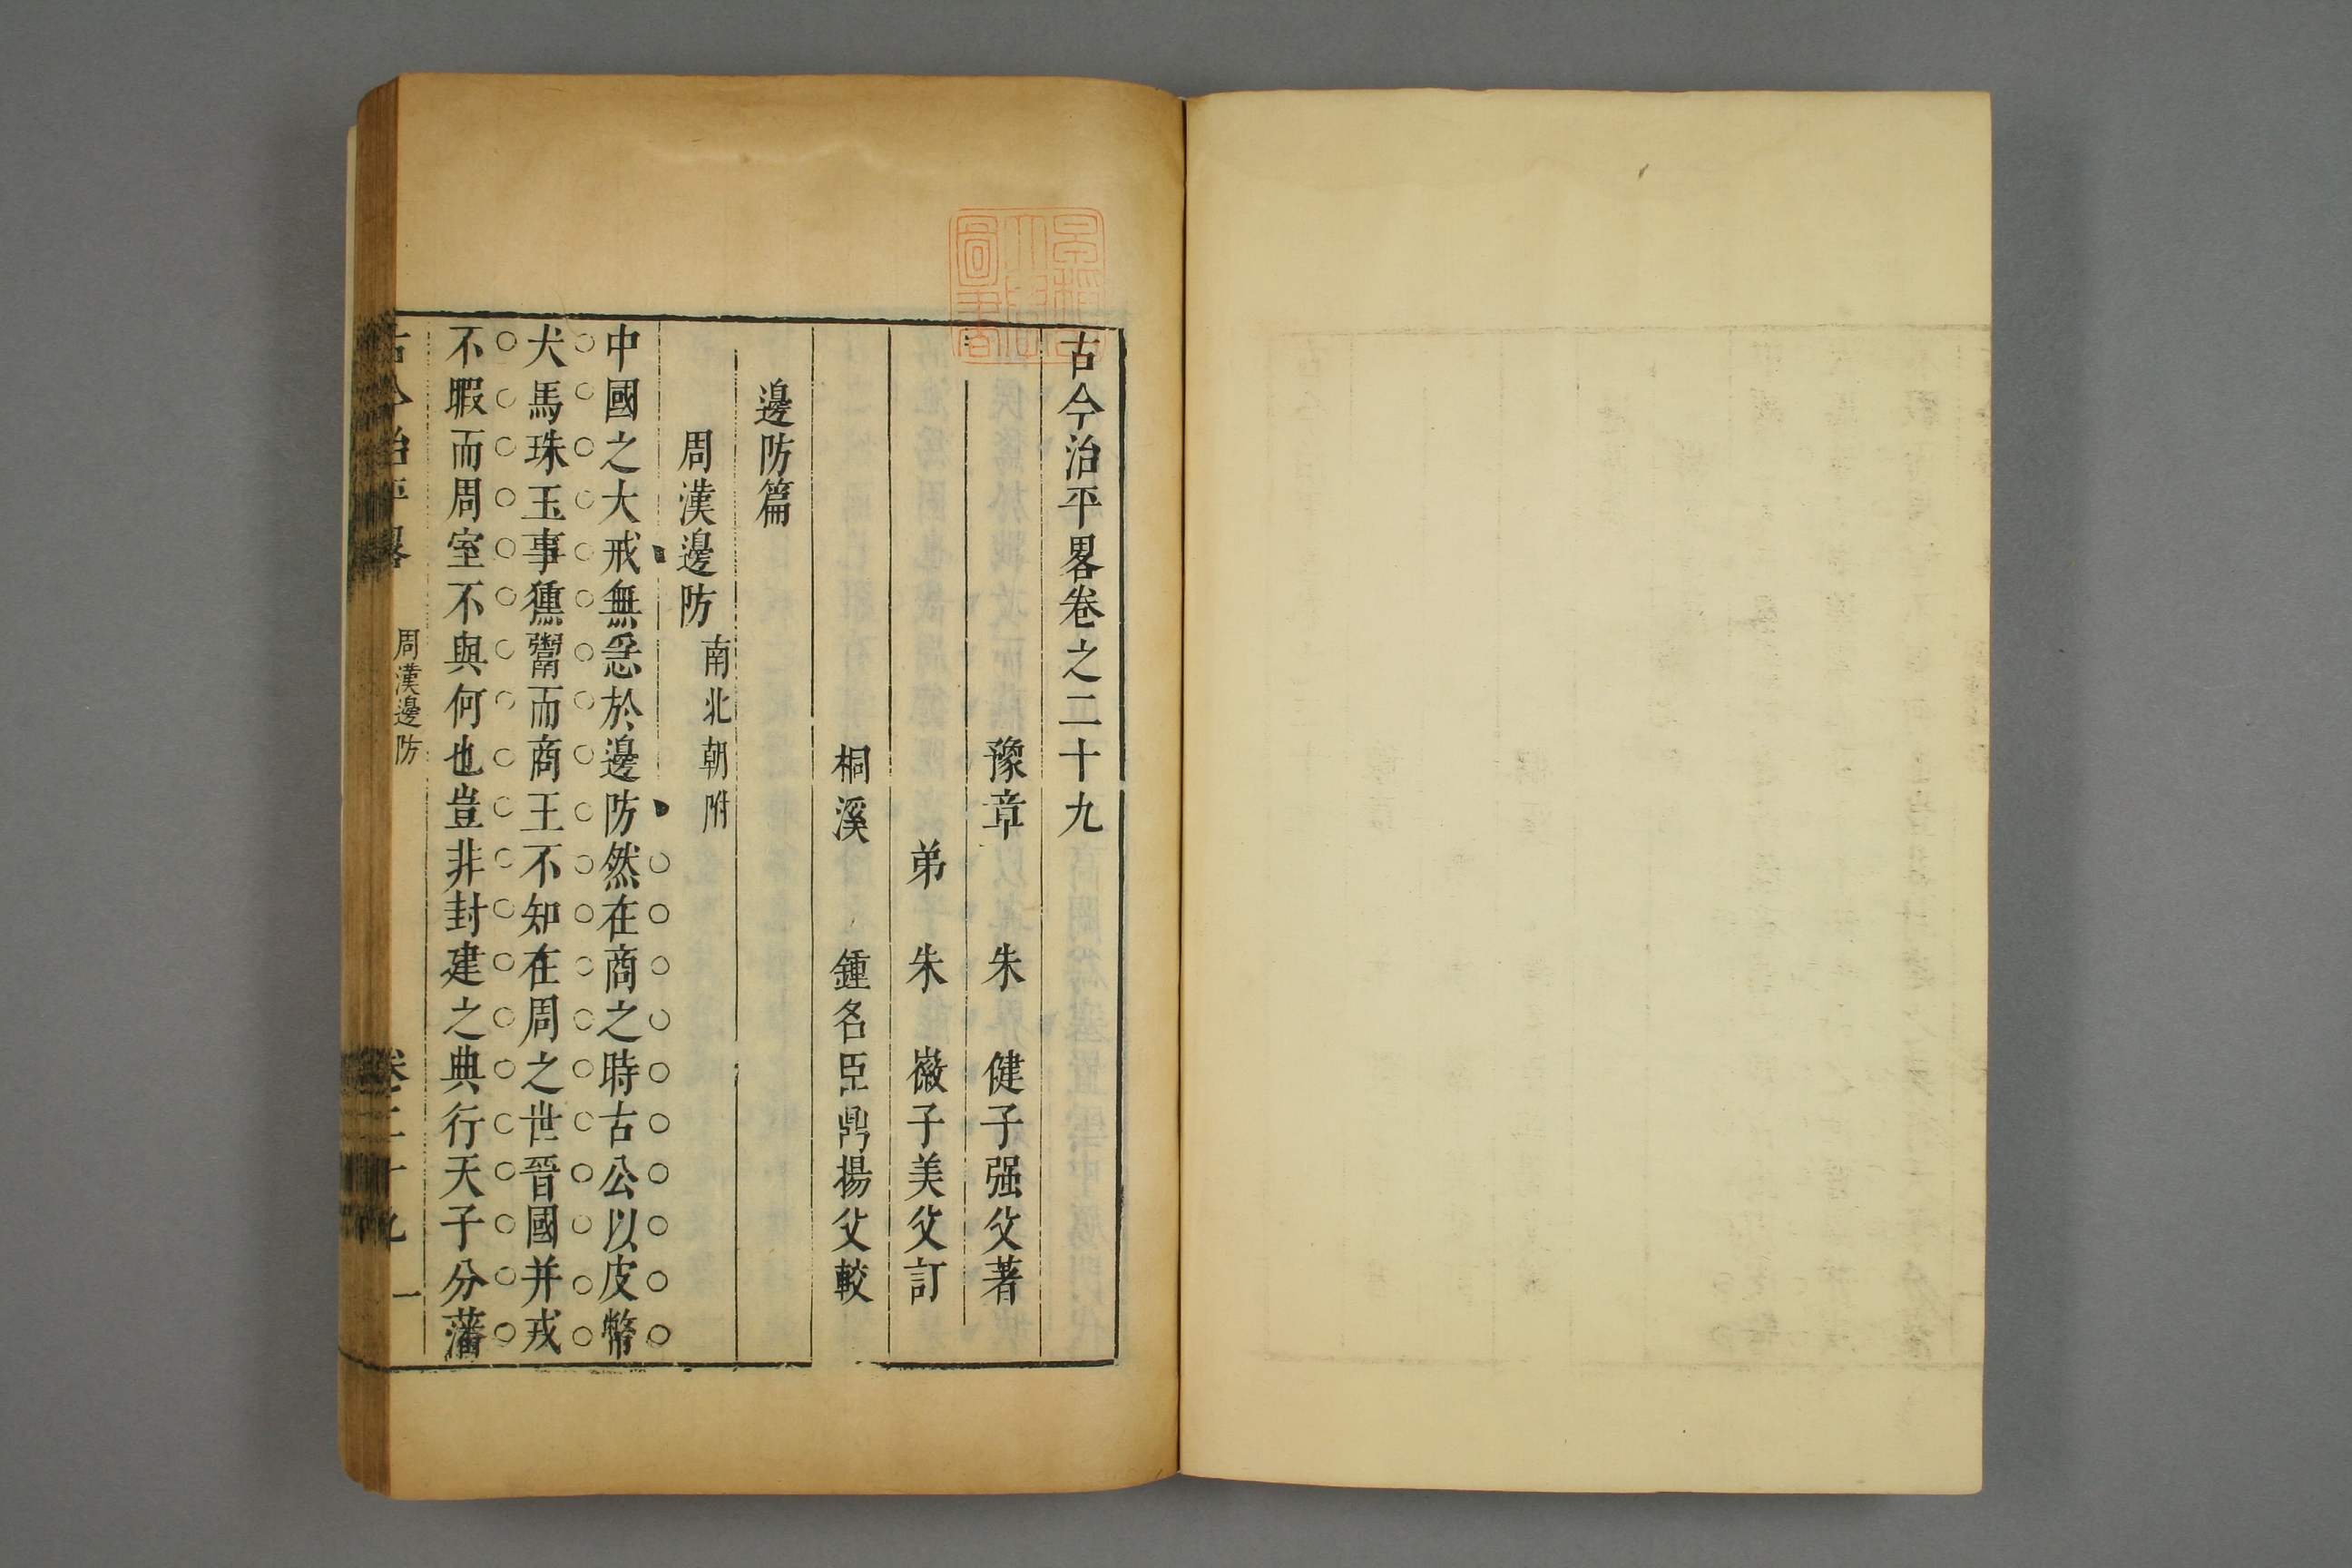 古今治平畧卷之二十九
豫章 朱 健子强父著
弟 朱 徽子美父訂
桐溪 鍾名臣鼎揚父較
邊防篇
周漢邊防 南北朝附
中國之大戒無忽於邊防然在商之時古公以皮幣
犬馬珠玉事獯鬻而商王不知在周之世晉國并戎
不暇而周室不與何也豈非封建之典行天子分藩
古今治平畧 周漢邊防 卷二十九 一